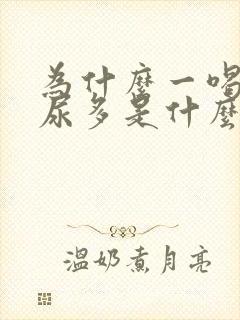 為什麼一喝
尿多是什麼
溫奶煮月亮